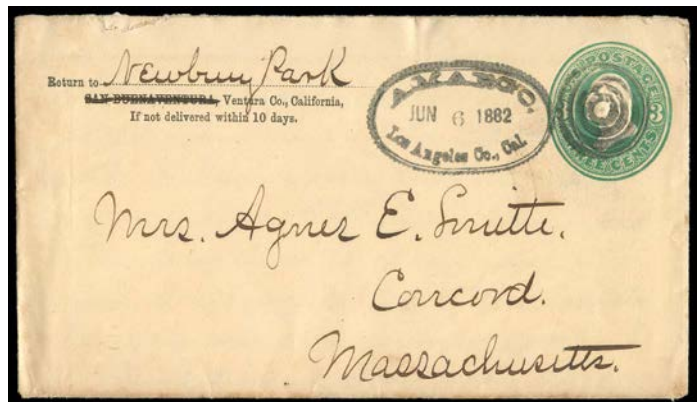 Return to Newbury Park
SAN BUENAVENTURA, Ventura Co., California,
If not delivered within 10 days.
AMARGO.
JUN 6 1882
Los Angeles Co., Cal.
U.S. POSTAGE
3 3
THREE CENTS
Mrs. Agnes E. Smith.
Concord.
Massachusetts.